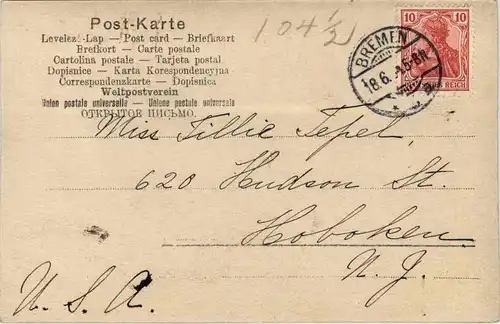 Post-Karte
Levelez.-Lap — Post card — Briefkaart
Brefkort — Carte postale
Cartolina postale — Tarjeta postal
Dopisnice — Karta Korespondencyjna
Correspondenzkarte — Dopisnica
Weltpostverein
Union postale universelle — Unione postale universale
ОТКРЫТОЕ ПИСЬМО.
104½
BREMEN
18.6.
5-6N
10 10
REICH
Miss Tillie Tepel,
620 Hudson St.
Hoboken
N. J.
U. S. A.